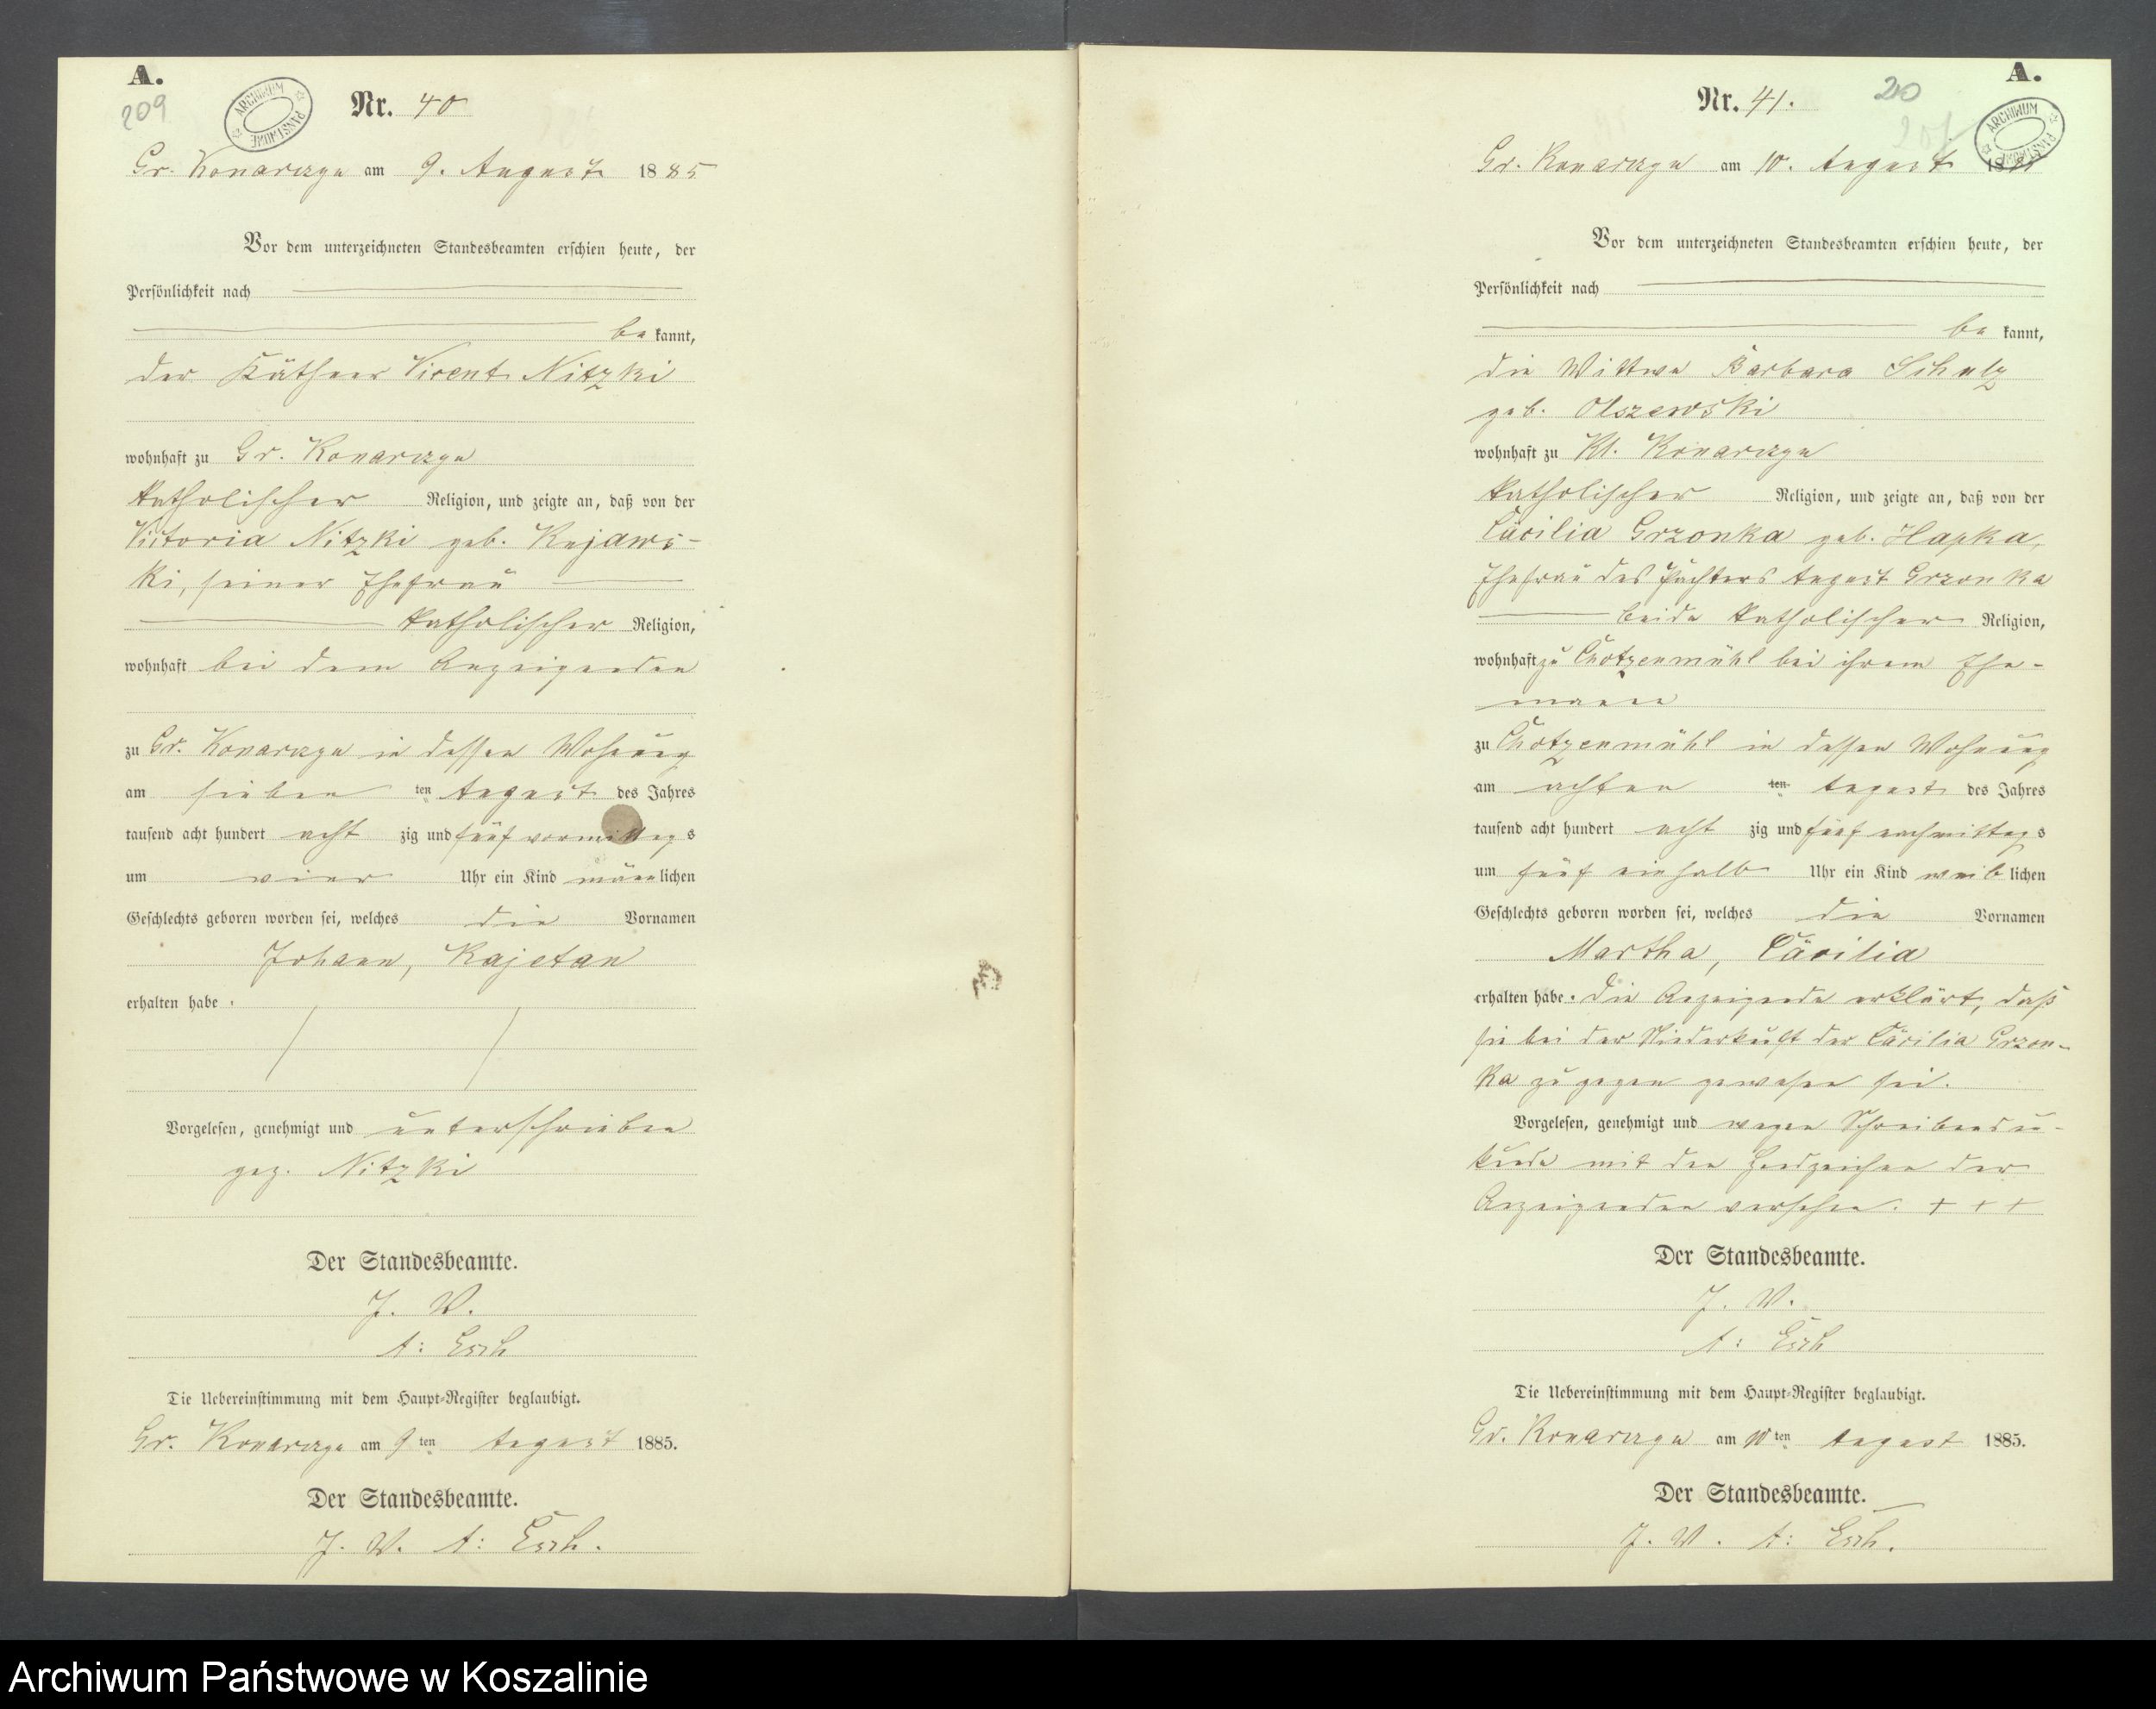 A.
209
ARCHIWUM PAŃSTWOWE
Nr. 40
Gr. Konarczyn am 9. August 1885
Vor dem unterzeichneten Standesbeamten erschien heute, der
Persönlichkeit nach
be kannt,
der Käthner Vicent Nitzki
wohnhaft zu Gr. Konarczyn
katholischer Religion, und zeigte an, daß von der
Victoria Nitzki geb. Kujaws-
ki, seiner Ehefrau
katholischer Religion,
wohnhaft bei dem Anzeigenden
zu Gr. Konarczyn in dessen Wohnung
am sieben ten August des Jahres
tausend acht hundert acht zig und fünf vormittag s
um vier Uhr ein Kind männ lichen
Geschlechts geboren worden sei, welches die Vornamen
Johann, Kajetan
erhalten habe.
Vorgelesen, genehmigt und unterschrieben
gez. Nitzki
Der Standesbeamte.
J. V.
A: Esch
Die Uebereinstimmung mit dem Haupt-Register beglaubigt.
Gr. Konarczyn am 9 ten August 1885.
Der Standesbeamte.
J. V. A: Esch.
A.
210
ARCHIWUM PAŃSTWOWE
Nr. 41.
Gr. Konarczyn am 10. August 1885
Vor dem unterzeichneten Standesbeamten erschien heute, der
Persönlichkeit nach
be kannt,
die Wittwe Barbara Schulz
geb. Olszewski
wohnhaft zu Kl. Konarczyn
katholischer Religion, und zeigte an, daß von der
Cäcilia Grzonka geb. Hapka,
Ehefrau des Pächters August Grzonka
beide katholischer Religion,
wohnhaft zu Chotzenmühl bei ihrem Ehe-
manne
zu Chotzenmühl in dessen Wohnung
am achten ten August des Jahres
tausend acht hundert acht zig und fünf nachmittag s
um fünf einhalb Uhr ein Kind weib lichen
Geschlechts geboren worden sei, welches die Vornamen
Martha, Cäcilia
erhalten habe. Die Anzeigende erklärt, daß
sie bei der Niederkunft der Cäcilia Grzon-
ka zugegen gewesen sei.
Vorgelesen, genehmigt und wegen Schreibensun-
kunde mit den Handzeichen der
Anzeigenden versehen. + + +
Der Standesbeamte.
J. V.
A: Esch
Die Uebereinstimmung mit dem Haupt-Register beglaubigt.
Gr. Konarczyn am 10 ten August 1885.
Der Standesbeamte.
J. V. A: Esch.
Archiwum Państwowe w Koszalinie